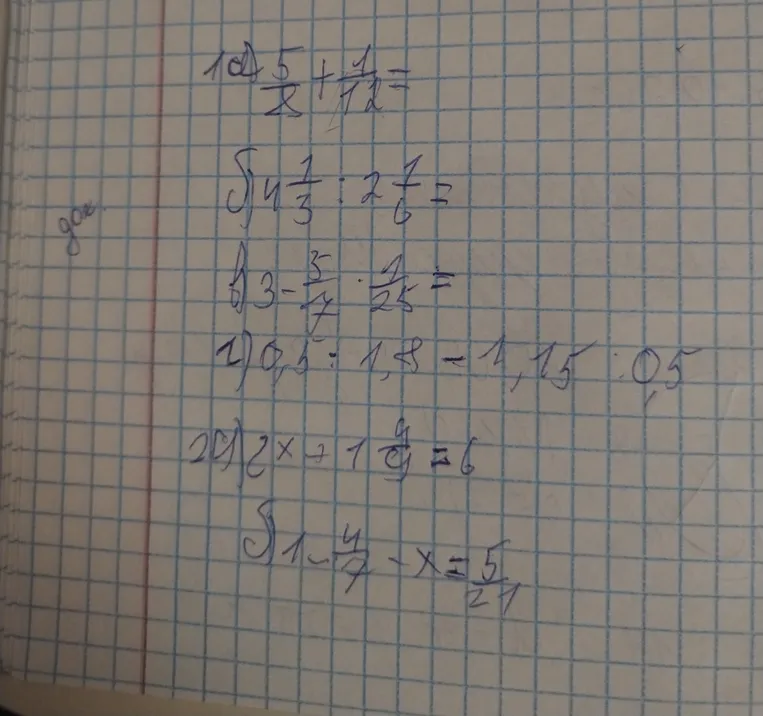 1а) 5/8 + 1/12 =
б) 4 1/3 : 2 1/6 =
в) 3 - 5/7 · 1/25 =
г) 0,5 : 1,8 - 1,15 : 0,5
2а) 2x + 1 4/9 = 6
б) 1 - 4/7 - x = 5/21